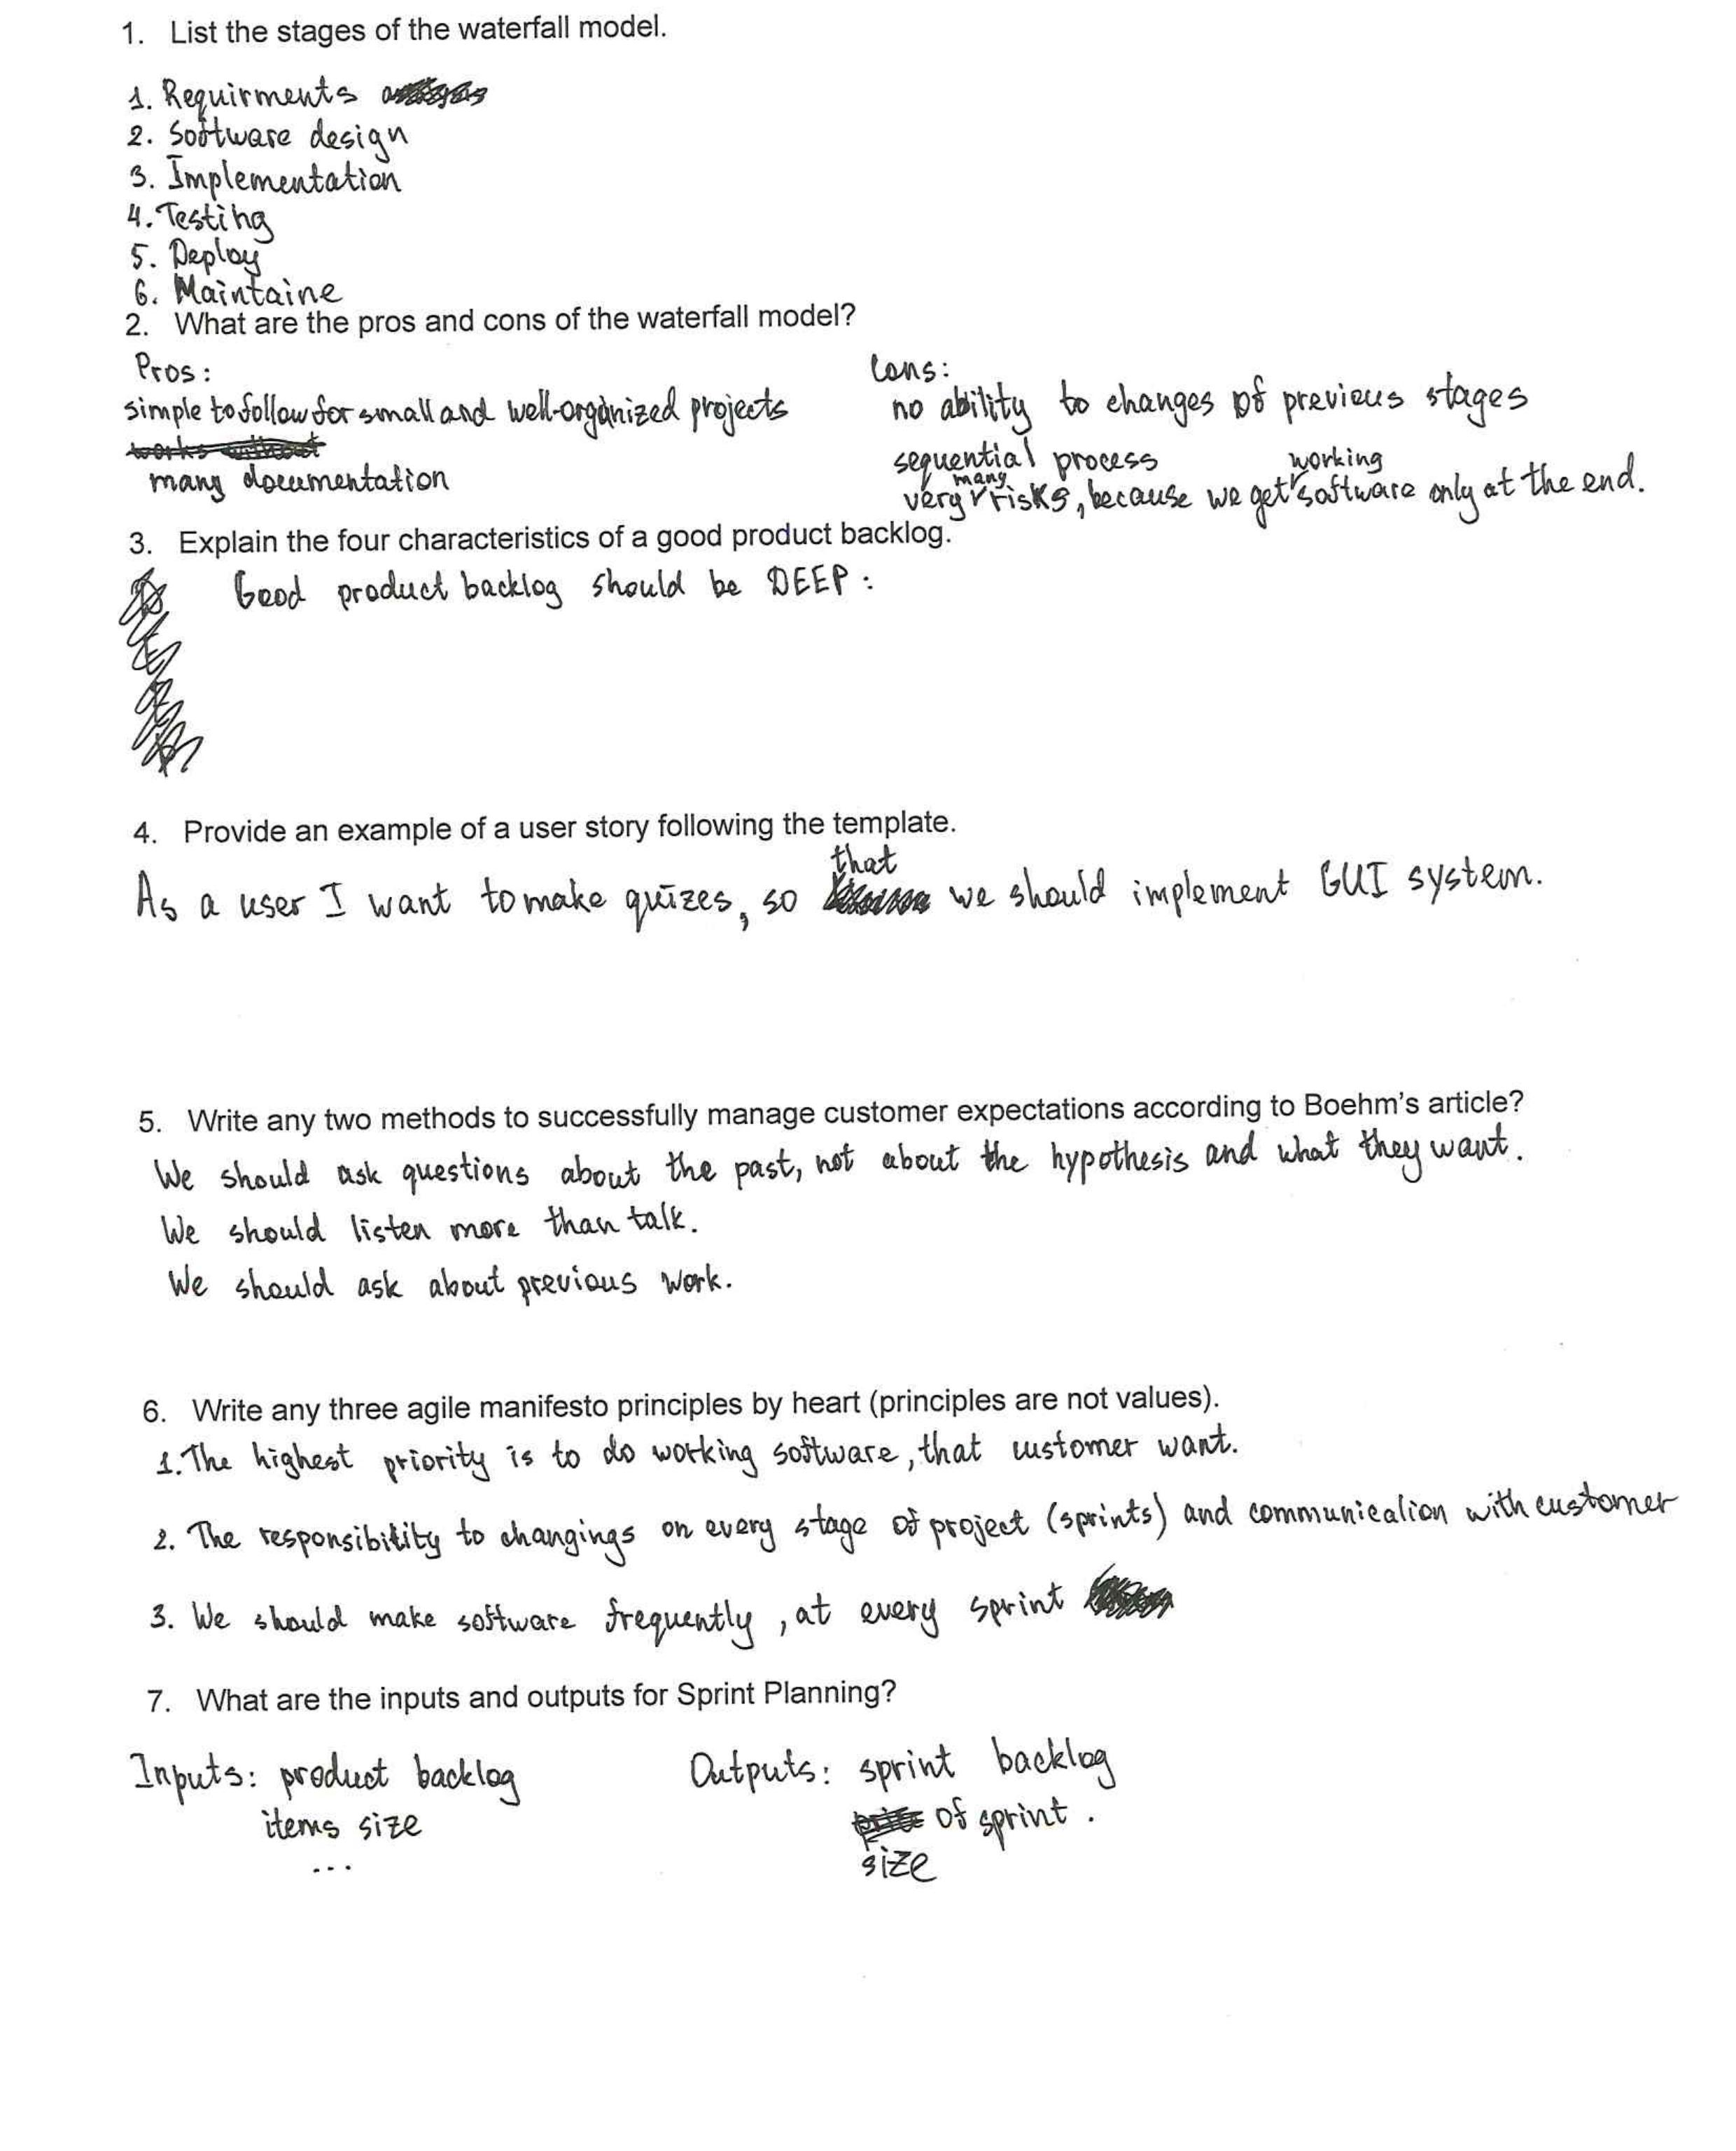 1. List the stages of the waterfall model.
1. Requirments
2. Software design
3. Implementation
4. Testing
5. Deploy
6. Maintaine
2. What are the pros and cons of the waterfall model?
Pros:
simple to follow for small and well-organized projects
works without
many documentation
Cons:
no ability to changes of previous stages
sequential process
very many risks, because we get working software only at the end.
3. Explain the four characteristics of a good product backlog.
Good product backlog should be DEEP:
4. Provide an example of a user story following the template.
As a user I want to make quizes, so that we should implement GUI system.
5. Write any two methods to successfully manage customer expectations according to Boehm's article?
We should ask questions about the past, not about the hypothesis and what they want.
We should listen more than talk.
We should ask about previous work.
6. Write any three agile manifesto principles by heart (principles are not values).
1. The highest priority is to do working software, that customer want.
2. The responsibility to changings on every stage of project (sprints) and communication with customer
3. We should make software frequently, at every sprint
7. What are the inputs and outputs for Sprint Planning?
Inputs: product backlog
items size
...
Outputs: sprint backlog
of sprint.
size